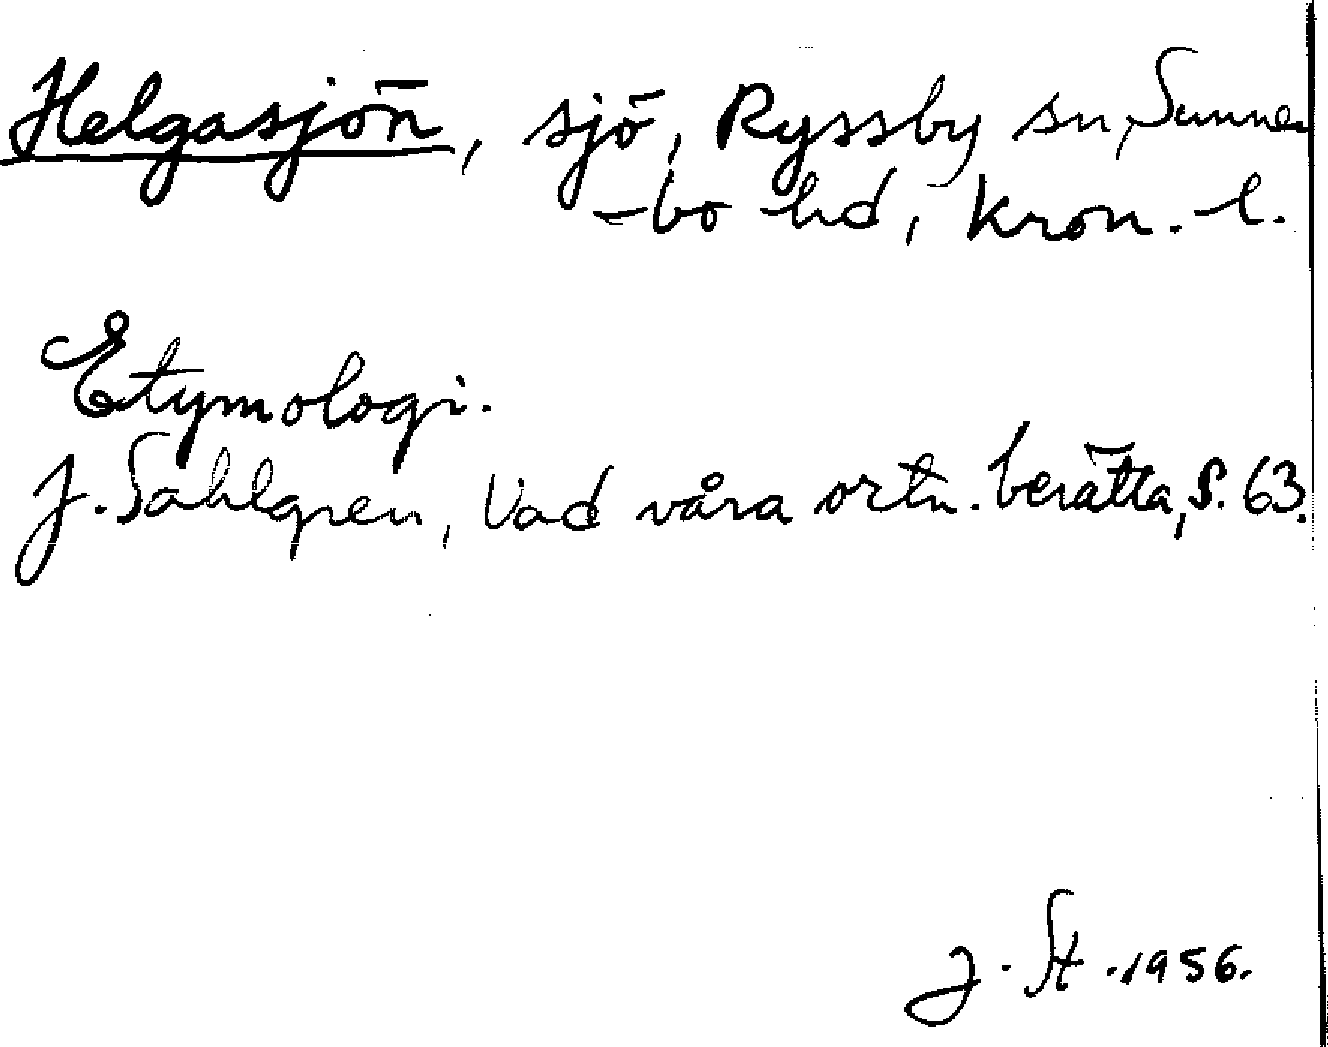 Helgasjön, sjö, Ryssby sn, Sunner
-bo hd, Kron. l.
Etymologi.
J. Sahlgren, Vad våra ortn. berätta, S. 63.
J. St. 1956.